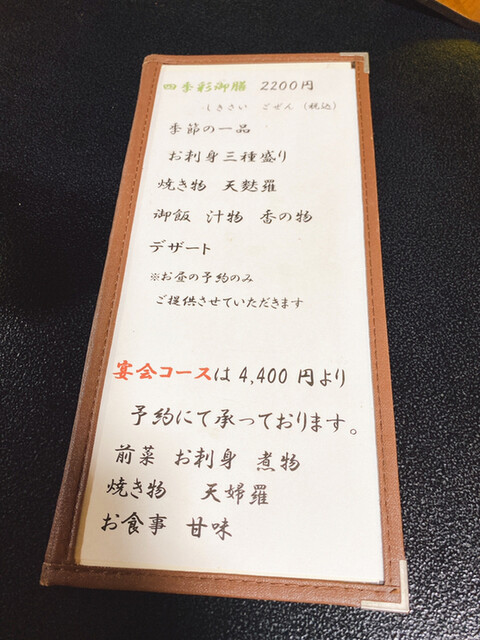 四季彩御膳 2200円
しきさい ごぜん (税込)
季節の一品
お刺身三種盛り
焼き物 天麩羅
御飯 汁物 香の物
デザート
※お昼の予約のみ
ご提供させていただきます
宴会コースは4,400円より
予約にて承っております。
前菜 お刺身 煮物
焼き物 天婦羅
お食事 甘味